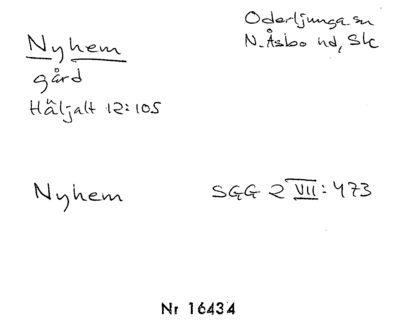 Nyhem
gård
Häljalt 12:105
Oderljunga sn
N. Åsbo hd, Sk
Nyhem
SGG 2 VII: 473
Nr 16434